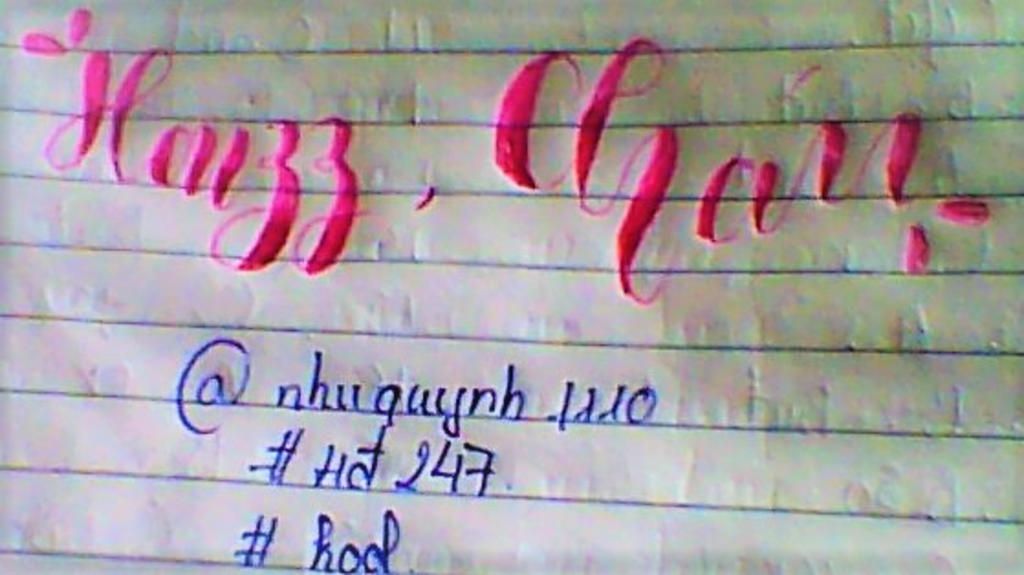 Haizz, Chán
@nhuquynh_1110
# Hđ 247
# hod